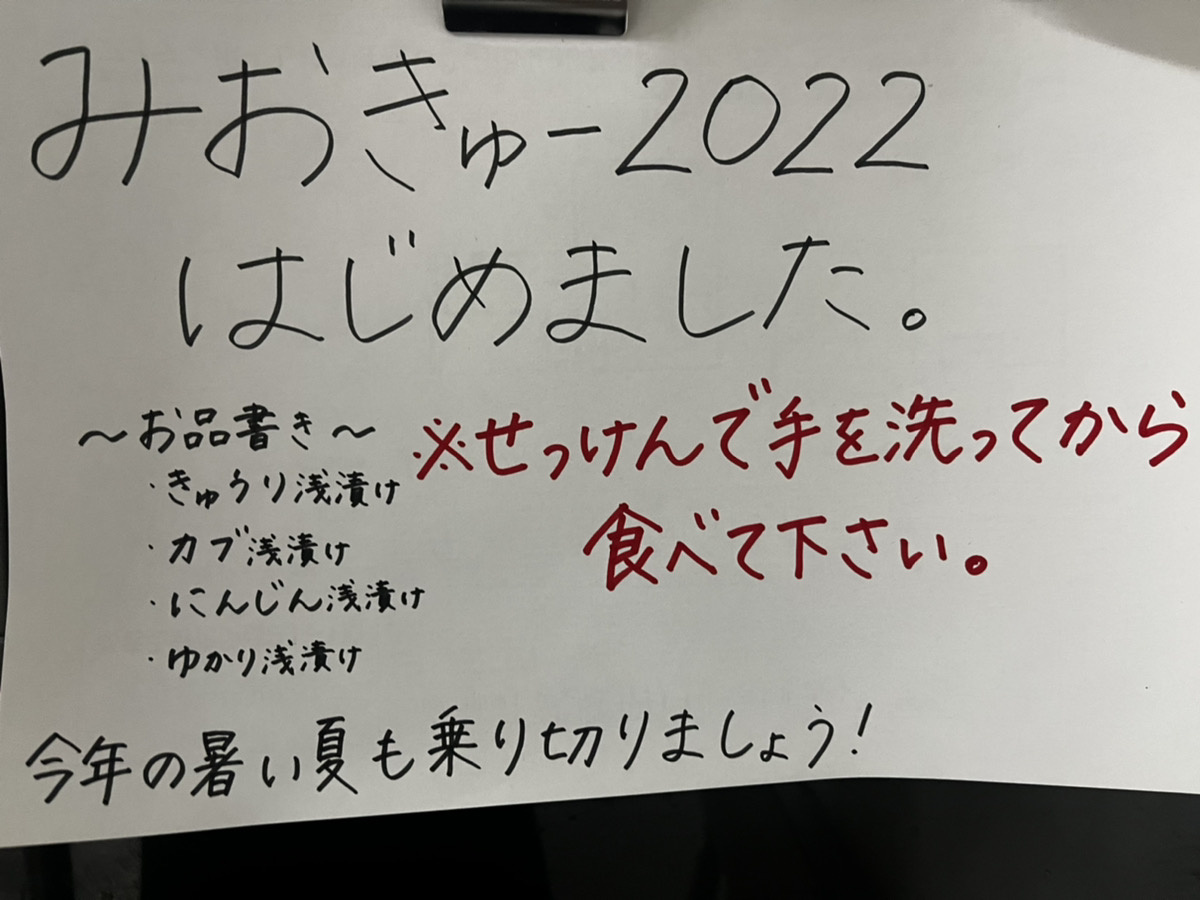 みおきゅー2022
はじめました。
～お品書き～
・きゅうり浅漬け
・カブ浅漬け
・にんじん浅漬け
・ゆかり浅漬け
※せっけんで手を洗ってから
食べて下さい。
今年の暑い夏も乗り切りましょう!